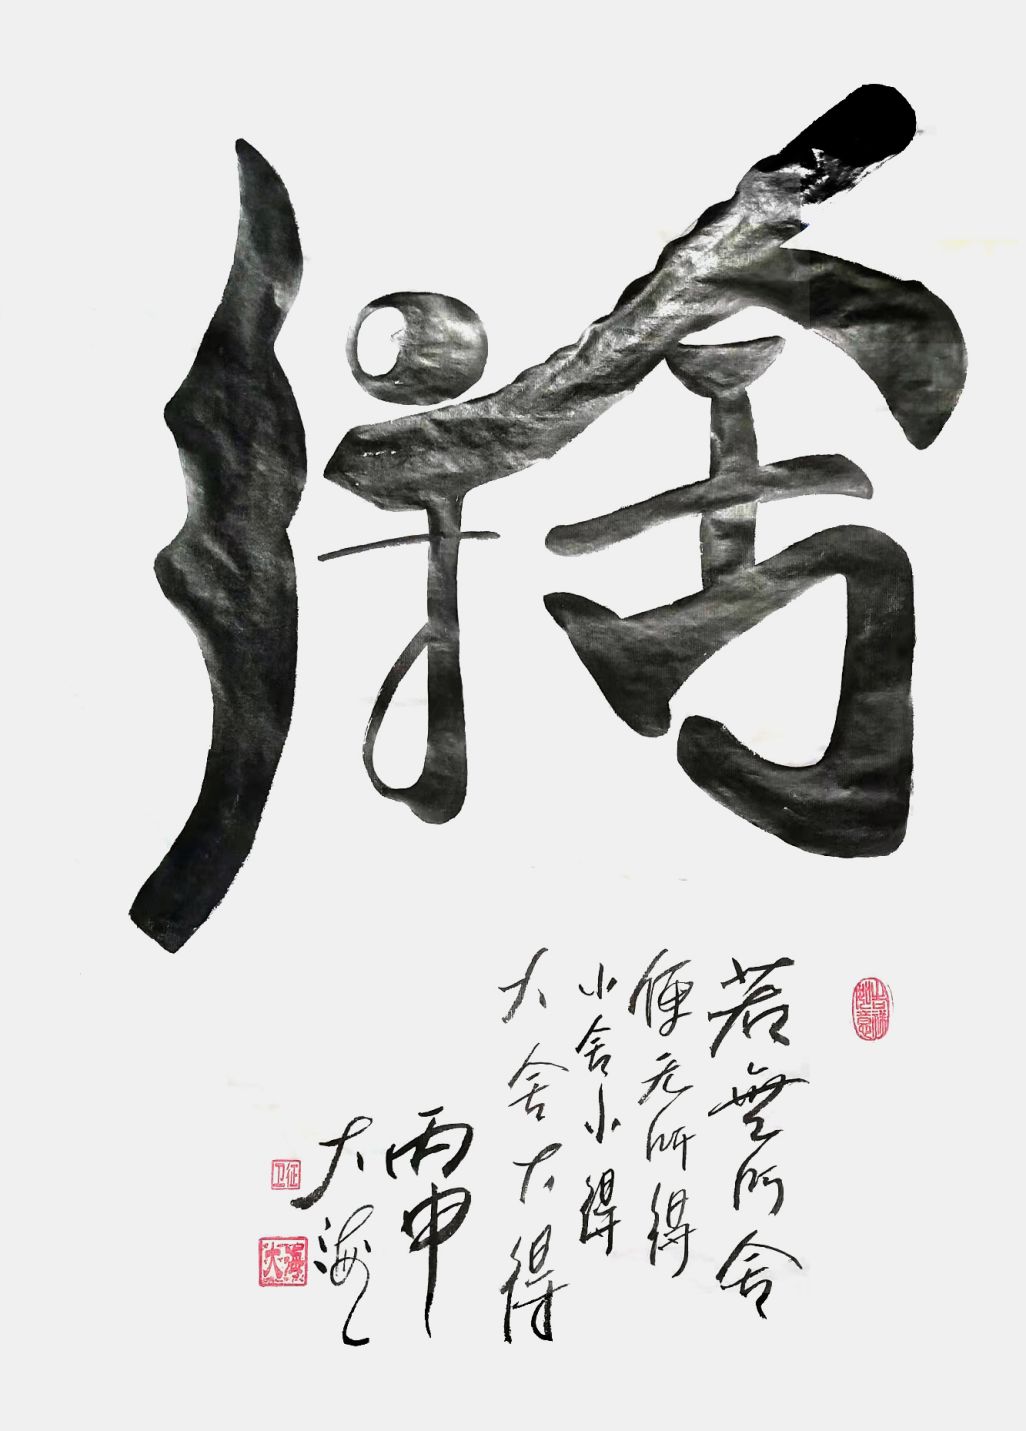 舍得
吉祥如意
若無所舍
便无所得
小舍小得
大舍大得
丙申
大海
卫征
大海